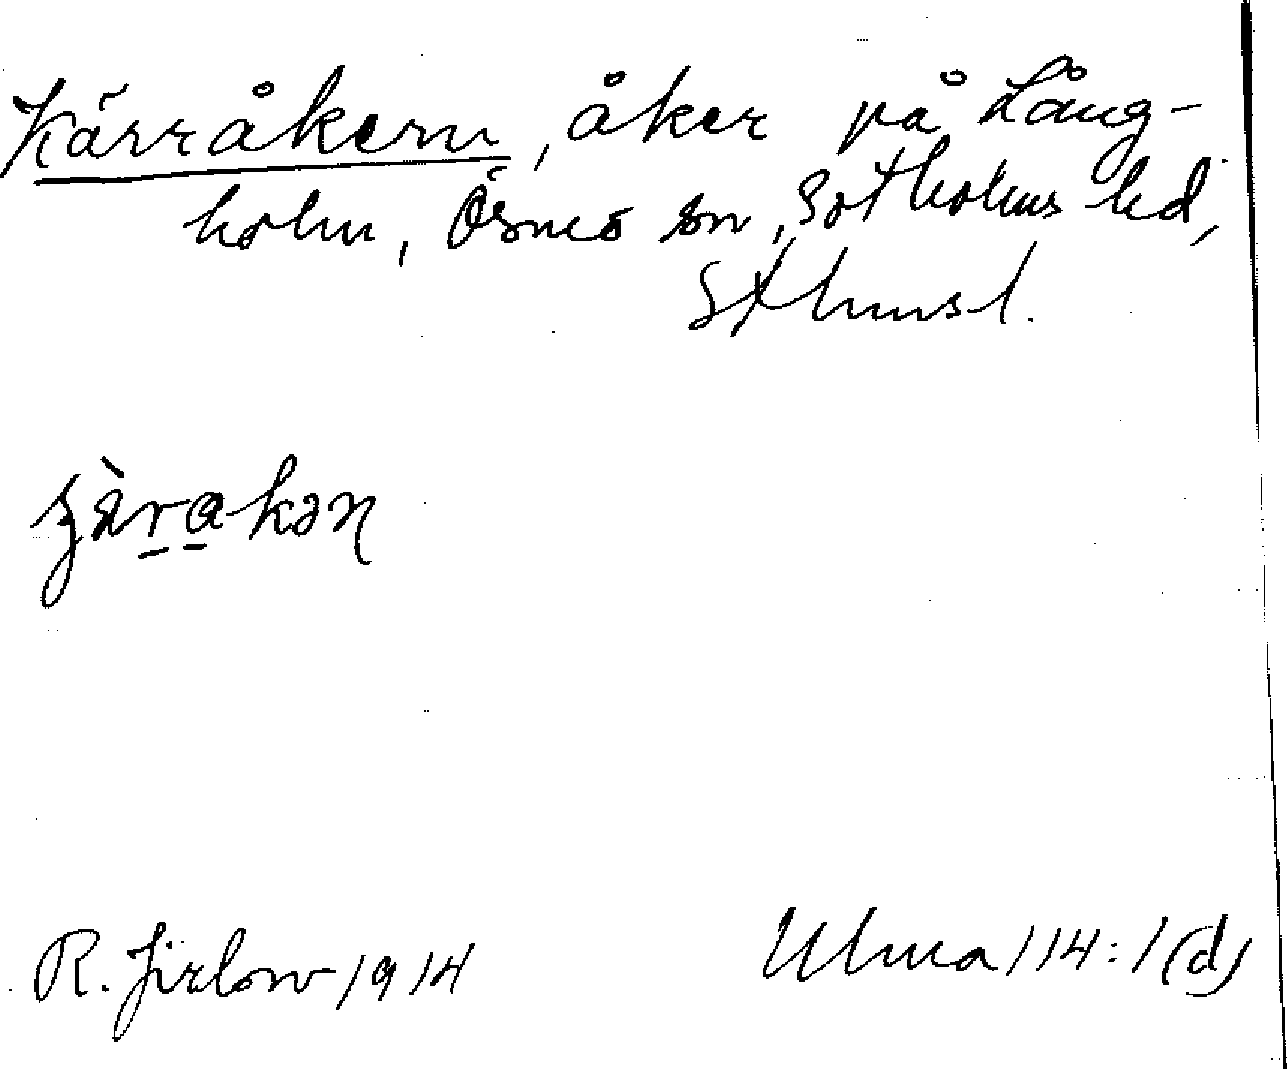 Kärråkern, åker på Lång-
holm, Ösmo sn, Sotholms hd,
Sthmsl.
R. Jirlow 1914
Ulma 114:1(d)